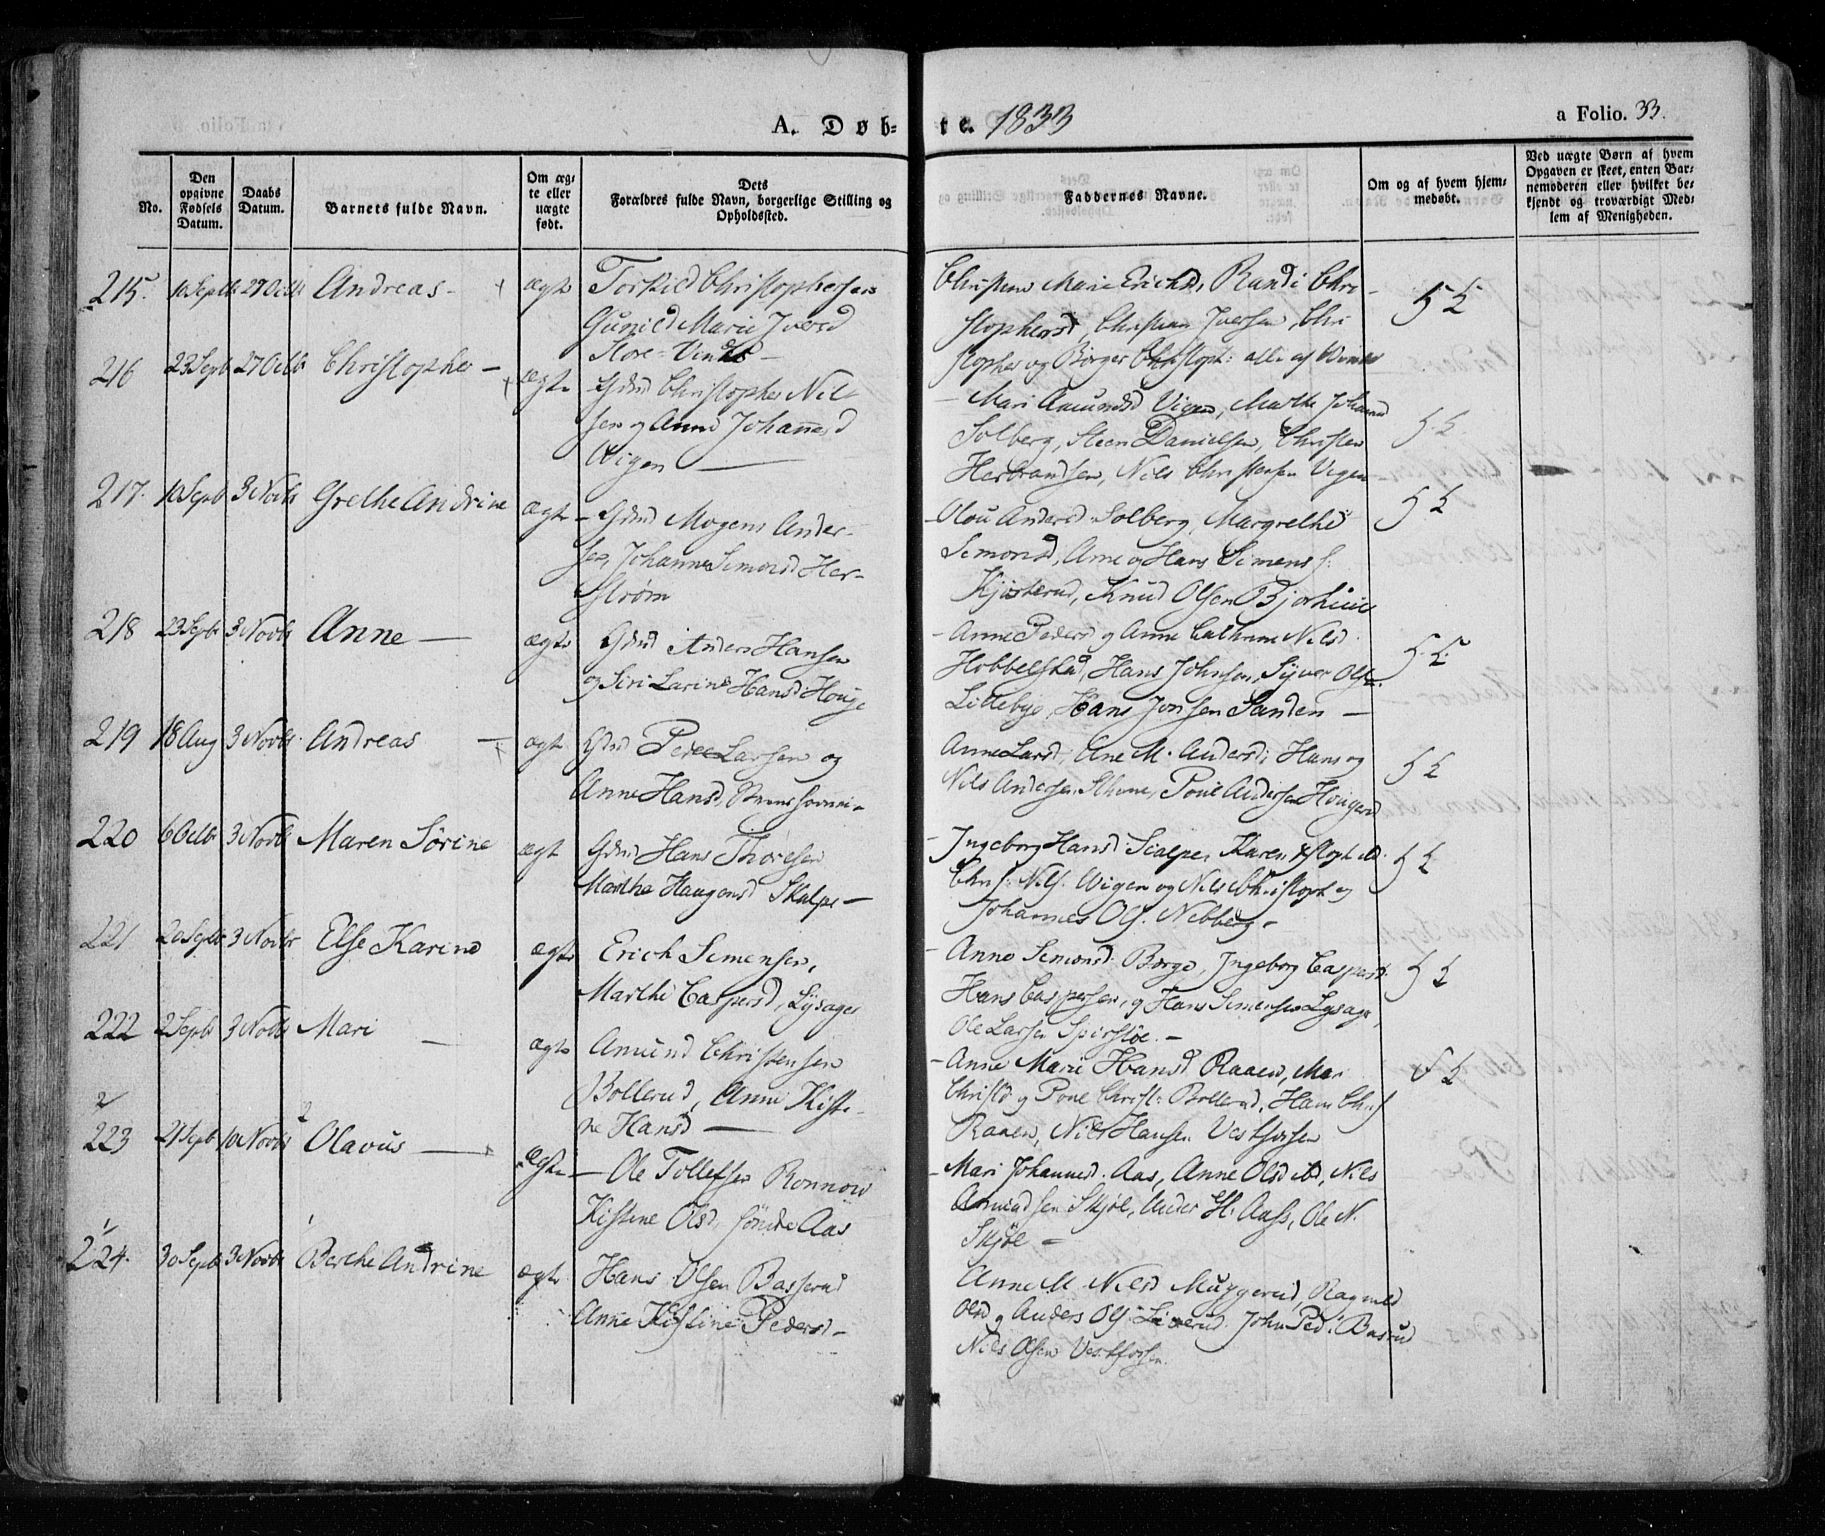 A. Døb- te. 1833
a Folio. 33.
No.
Den opgivne Fødsels Datum.
Daabs Datum.
Barnets fulde Navn.
Om ægte eller uægte født.
Dets Forældres fulde Navn, borgerlige Stilling og Opholdssted.
Faddernes Navne.
Om og af hvem hjemmedøbt.
Ved uægte Børn af hvem Opgaven er skeet, enten Barnemoderen eller hvilket bekjendt og troværdigt Medlem af Menigheden.
215. 10 Septb 27 Octb Andreas - ægte
Torkild Christophersen
Gunild Marie Iversd
Store-
Marie Erichsd, Randi Chri-
stophersd, Christian Iversen, Chri
stopher og Börger Christoph: alle af
216 23 Septb 27 Octb Christopher - ægte
Gdmd Christopher Nil-
sen og Anne Johannesd
Vigen —
- Mari Amundsd Vigen, Marthe Johannd
Solberg, Steen Danielsen, Christen
Herbransen, Nils Christensen Vigen
217. 10 Septb 3 Novbr Grethe Andrine ægte
- Gdmd Mogens Ander-
sen, Johanne Simonsd Her-
strøm
- Andersd Solberg, Margrethe
Simonsd, Arne og Hans Simens f:
Kjösterud, Knud Olsen
218 23 Septbr 3 Novbr Anne — ægte
Gdmd Anders Hansen
og Siri Larine Hansd Houge
- Anne Pedersd og Anne Cathrine Nilsd.
Hobbelstad, Hans Johnsen, Syver Ols.
Lillebye, Hans Jonsen Sanden —
219 18 Aug 3 Novbr. Andreas — ægte
Gdmd Peder Larsen og
Anne Hansd,
Anne Larsd, Ane M. Andersd; Hans og
Nils Andersen Poul Andersen
220 6 Octbr 3 Novb Maren Sörine ægt
Gdmd Hans Thoresen
Marthe Haagensd Skalpe —
- Ingeborg Hansd Scalpe, Karen
Chr f: Nils. Wigen og Nils Christoph og
Johannes Ols. Nebberg -
221 20 Septbr 3 Novbr Else Karine ægte
Erich Simensen,
Marthe Caspersd, Lysager
- Anne Simonsd Borge, Ingeborg Caspersd.
Hans Caspersen, og Hans Simensen Lysager,
Ole Larsen
222 2 Septb 3 Novbr Mari — ægte
Amund Christensen
Bollerud, Anne Kisti-
ne Hansd —
- Anne Marie Hansd Raaen, Mari
Christsd og Christ: Bollerud, Hans Chr f
Raaen, Niels Hansen Vestfossen
2
223 21 Septb 10 Novbr Olavus — ægte
— Ole Tollefsen Rönnow
Kistine Olsd, söndre Aas
- Mari Johannesd. Aas, Anne Olsd ibd, Nils
Amundsen Skjöl, Ander H: Aass, Ole N.
Skjöl —
1
224. 30 Septb 3 Novbr Berthe Andrine ægte
Hans Olsen Basserud
Anne Kistine Pedersd —
Anne M Nielsd Muggerud, Ragnild
Olsd og Anders Ols John Ped: Basrud
Nils Olsen Vestfossen.